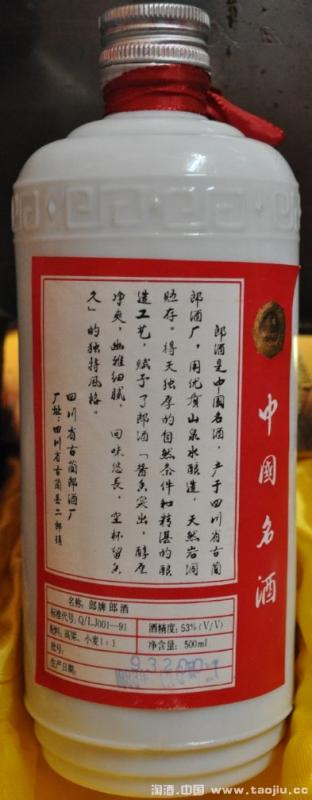 中國名酒
郎酒是中国名酒，产于四川省古蔺
郎酒厂，用优质山泉水酿造，天然岩洞
贮存。得天独厚的自然条件和精湛的酿
造工艺，赋予了郎酒「酱香突出，醇厚
净爽，幽雅细腻，回味悠長，空杯留香
久」的独特风格。
四川省古蔺郎酒厂
厂址：四川省古蔺县二郎镇
名称：郎牌郎酒
标准代号：Q/LJ001—91
酒精度：53%(V/V)
配料：高粱、小麦1：1
净含量：500ml
批号：
生产日期：
淘酒.中国 www.taojiu.cc